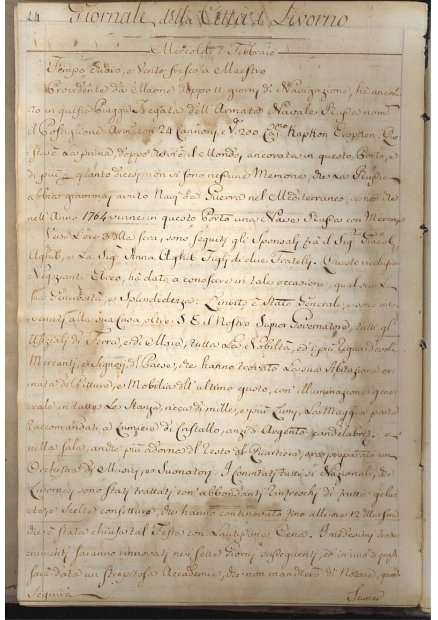 24
Giornale della Città di Livorno
Mercoldi 7 Febbraio
Tempo chiaro, e Vento fresco a Maestro
Procedente da Maone doppo 11 giorni di Navigazione, hà ancora
to in queste Piagge Fregata dell Armata Navale Russa nom
il Postiglione Arm. con 24 Cannoni, e 200 Cap.no
è la prima, doppo che è il Mondo, ancorata in questo Porto, e
di più quanto dicesi, non vi sono nessune Memorie, che La Russia
abbia giammai avuto Navi da Guerra nel Mediterraneo, se non che
nell' Anno 1764 venne in questo Porto una Nave Russa con Mercanzie
Verso L'ore 3 della sera, sono seguiti gli Sponsali trà il Sig.r Giacob
Aghib, e La Sig.ra Anna Aghib Figli di due Fratelli. Questo ricchissimo
Negoziante Ebreo, hà dato a conoscere in tale occasione, qual sia La
sua Generosità, e Splendidezza. L'invito è Stato Generale, e sono inter
venuti alla sua Casa oltre S. E. il Nostro Superior Governatore, tutti gli
Ufiziali di Terra, e di Mare, tutta La Nobiltà, ed i più riguardevoli
Mercanti, e Signori del Paese, che hanno trovato La sua Abitazione or
nata di Pitture, e Mobilia all' ultimo gusto, con' illuminazione gene
rale in tutte Le Stanze, ricca di mille, e più Lumi, La Maggior parte
Raccomandati a Lumiere di Cristallo, anzi d' Argento, candelabri, e
nella sala, anche più adorna del resto del Quartiere, era preparata un
Orchestra di Musici, e Suonatori. I Convitati tutti sì Nazionali, che
Livornesi sono stati trattati con' abbondanti rinfreschi di frutta gela
te, e scelte confetture, che hanno continovato fino alle ore 12 allor
che è stata chiusa tal Festa con Lautissima Cena. I medesimi tratte
nimenti saranno rinnovati nei sette giorni susseguenti, ed in uno di questi
sarà data un strepitosa Accademia, che non mancherò di Notare, quando
Seguirà.